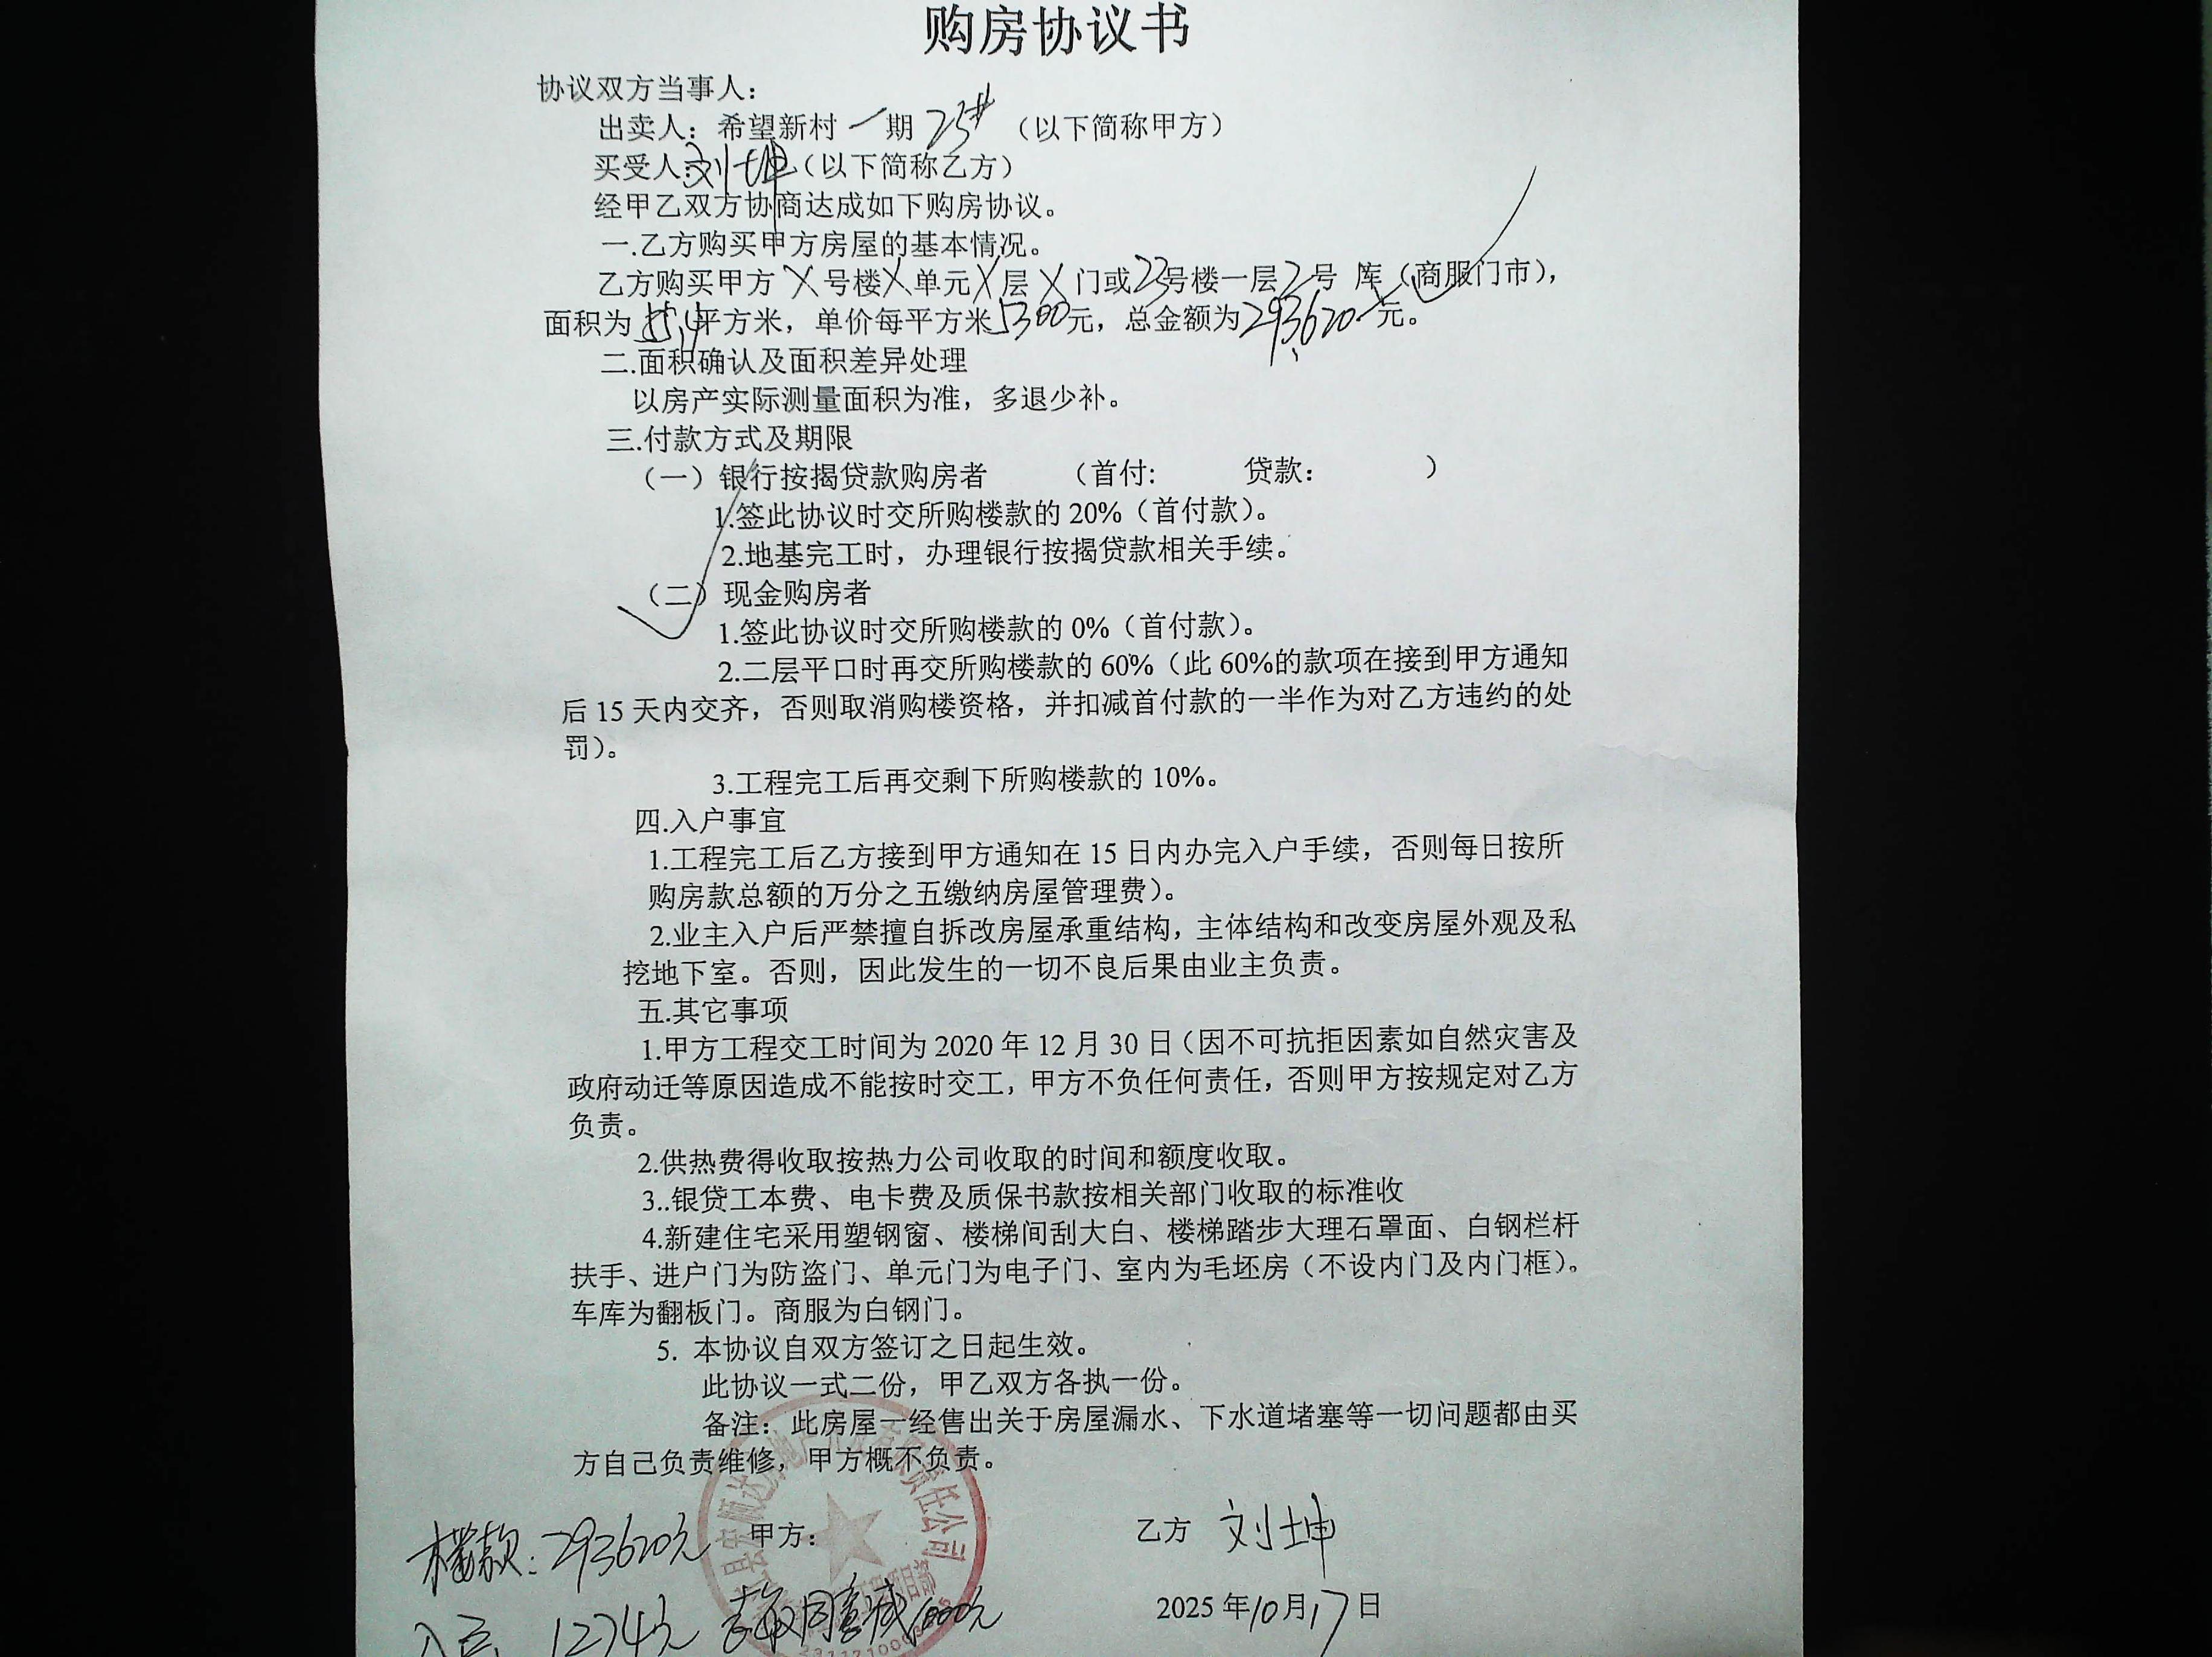 购房协议书
协议双方当事人：
出卖人：希望新村一期 23# （以下简称甲方）
买受人：刘坤（以下简称乙方）
经甲乙双方协商达成如下购房协议。
一.乙方购买甲方房屋的基本情况。
乙方购买甲方 X 号楼 X 单元 X 层 X 门或 23号楼一层 2号 库（商服门市），
面积为 55.4平方米，单价每平方米5300元，总金额为293620元。
二.面积确认及面积差异处理
以房产实际测量面积为准，多退少补。
三.付款方式及期限
（一）银行按揭贷款购房者 （首付: 贷款： ）
1.签此协议时交所购楼款的 20%（首付款）。
2.地基完工时，办理银行按揭贷款相关手续。
（二）现金购房者
1.签此协议时交所购楼款的 0%（首付款）。
2.二层平口时再交所购楼款的 60%（此 60%的款项在接到甲方通知
后 15 天内交齐，否则取消购楼资格，并扣减首付款的一半作为对乙方违约的处
罚）。
3.工程完工后再交剩下所购楼款的 10%。
四.入户事宜
1.工程完工后乙方接到甲方通知在 15 日内办完入户手续，否则每日按所
购房款总额的万分之五缴纳房屋管理费）。
2.业主入户后严禁擅自拆改房屋承重结构，主体结构和改变房屋外观及私
挖地下室。否则，因此发生的一切不良后果由业主负责。
五.其它事项
1.甲方工程交工时间为 2020 年 12 月 30 日（因不可抗拒因素如自然灾害及
政府动迁等原因造成不能按时交工，甲方不负任何责任，否则甲方按规定对乙方
负责。
2.供热费得收取按热力公司收取的时间和额度收取。
3..银贷工本费、电卡费及质保书款按相关部门收取的标准收
4.新建住宅采用塑钢窗、楼梯间刮大白、楼梯踏步大理石罩面、白钢栏杆
扶手、进户门为防盗门、单元门为电子门、室内为毛坯房（不设内门及内门框）。
车库为翻板门。商服为白钢门。
5. 本协议自双方签订之日起生效。
此协议一式二份，甲乙双方各执一份。
备注：此房屋一经售出关于房屋漏水、下水道堵塞等一切问题都由买
方自己负责维修，甲方概不负责。
楼款：293620元 甲方： 乙方 刘坤
12743元 同意减1000元 2025 年10月17日